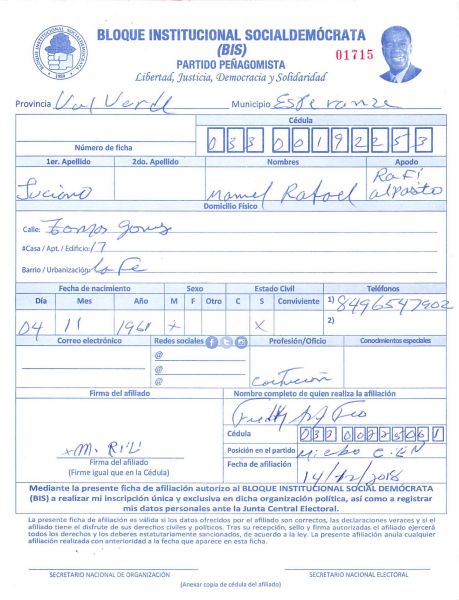 BLOQUE INSTITUCIONAL SOCIALDEMÓCRATA
(BIS)
PARTIDO PEÑAGOMISTA
Libertad, Justicia, Democracia y Solidaridad
01715
BLOQUE INSTITUCIONAL SOCIALDEMOCRATA
Provincia Valverde Municipio Esperanza
Cédula
Número de ficha 033 0019225 3
1er. Apellido 2do. Apellido Nombres Apodo
Luciano Manuel Rafael Rafi
Domicilio Físico
Calle: Gomez
#Casa / Apt. / Edificio: 17
Barrio / Urbanización: La Fe
Fecha de nacimiento Sexo Estado Civil Teléfonos
Día Mes Año M F Otro C S Conviviente 1) 8496547902
04 11 1961 x X 2)
Correo electrónico Redes sociales Profesión/Oficio Conodmientos especiales
@
@
@
Firma del afiliado Nombre completo de quien realiza la afiliación
Freddy
Cédula
Posición en el partido C.E.N
Firma del afiliado
(Firme igual que en la Cédula)
Fecha de afiliación 14/12/2018
Mediante la presente ficha de afiliación autorizo al BLOQUE INSTITUCIONAL SOCIAL DEMÓCRATA
(BIS) a realizar mi inscripción única y exclusiva en dicha organización política, así como a registrar
mis datos personales ante la Junta Central Electoral.
La presente ficha de afiliación es válida si los datos ofrecidos por el afiliado son correctos, las declaraciones veraces y si el
afiliado tiene el disfrute de sus derechos civiles y políticos. Tras su recepción, sello y firma autorizadas el afiliado ejercerá
todos los derechos y los deberes estatutariamente sancionados, de acuerdo a la ley. La presente afiliación anula cualquier
afiliación realizada con anterioridad a la fecha que aparece en esta ficha.
SECRETARIO NACIONAL DE ORGANIZACIÓN SECRETARIO NACIONAL ELECTORAL
(Anexar copia de cédula del afiliado)